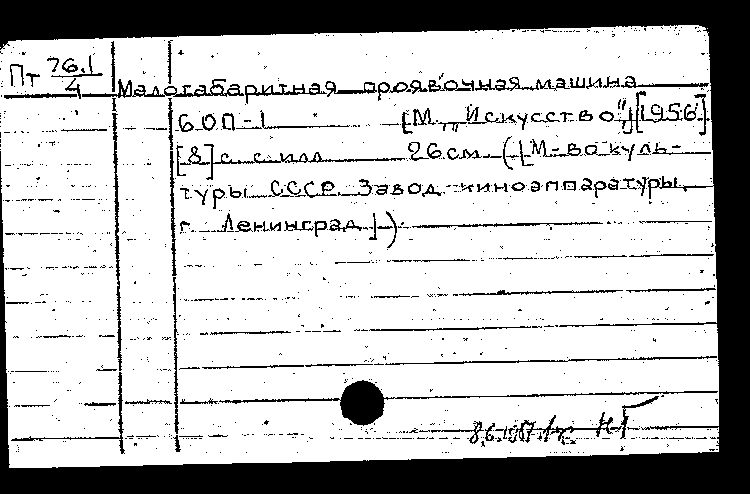 Пт 76.1/4
Малогабаритная проявочная машина
60П-1 [М., „Искусство“,] [1956].
[8] с. с илл. 26см. ([М-во куль-
туры СССР. Завод киноаппаратуры.
г. Ленинград])